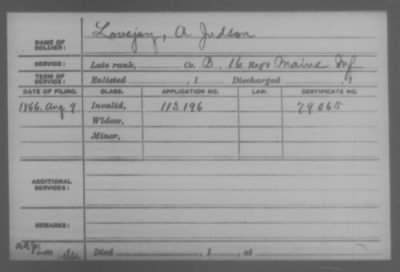 NAME OF SOLDIER: Lovejoy, A Judson
SERVICE: Late rank, Co. B, 16 Reg't Maine Inf
TERM OF SERVICE: Enlisted , 1 Discharged , 1
DATE OF FILING. CLASS. APPLICATION NO. LAW. CERTIFICATE NO.
1866, Aug 9 Invalid, 113196 79065
Widow,
Minor,
ADDITIONAL SERVICES:
REMARKS:
Died , 1 , at